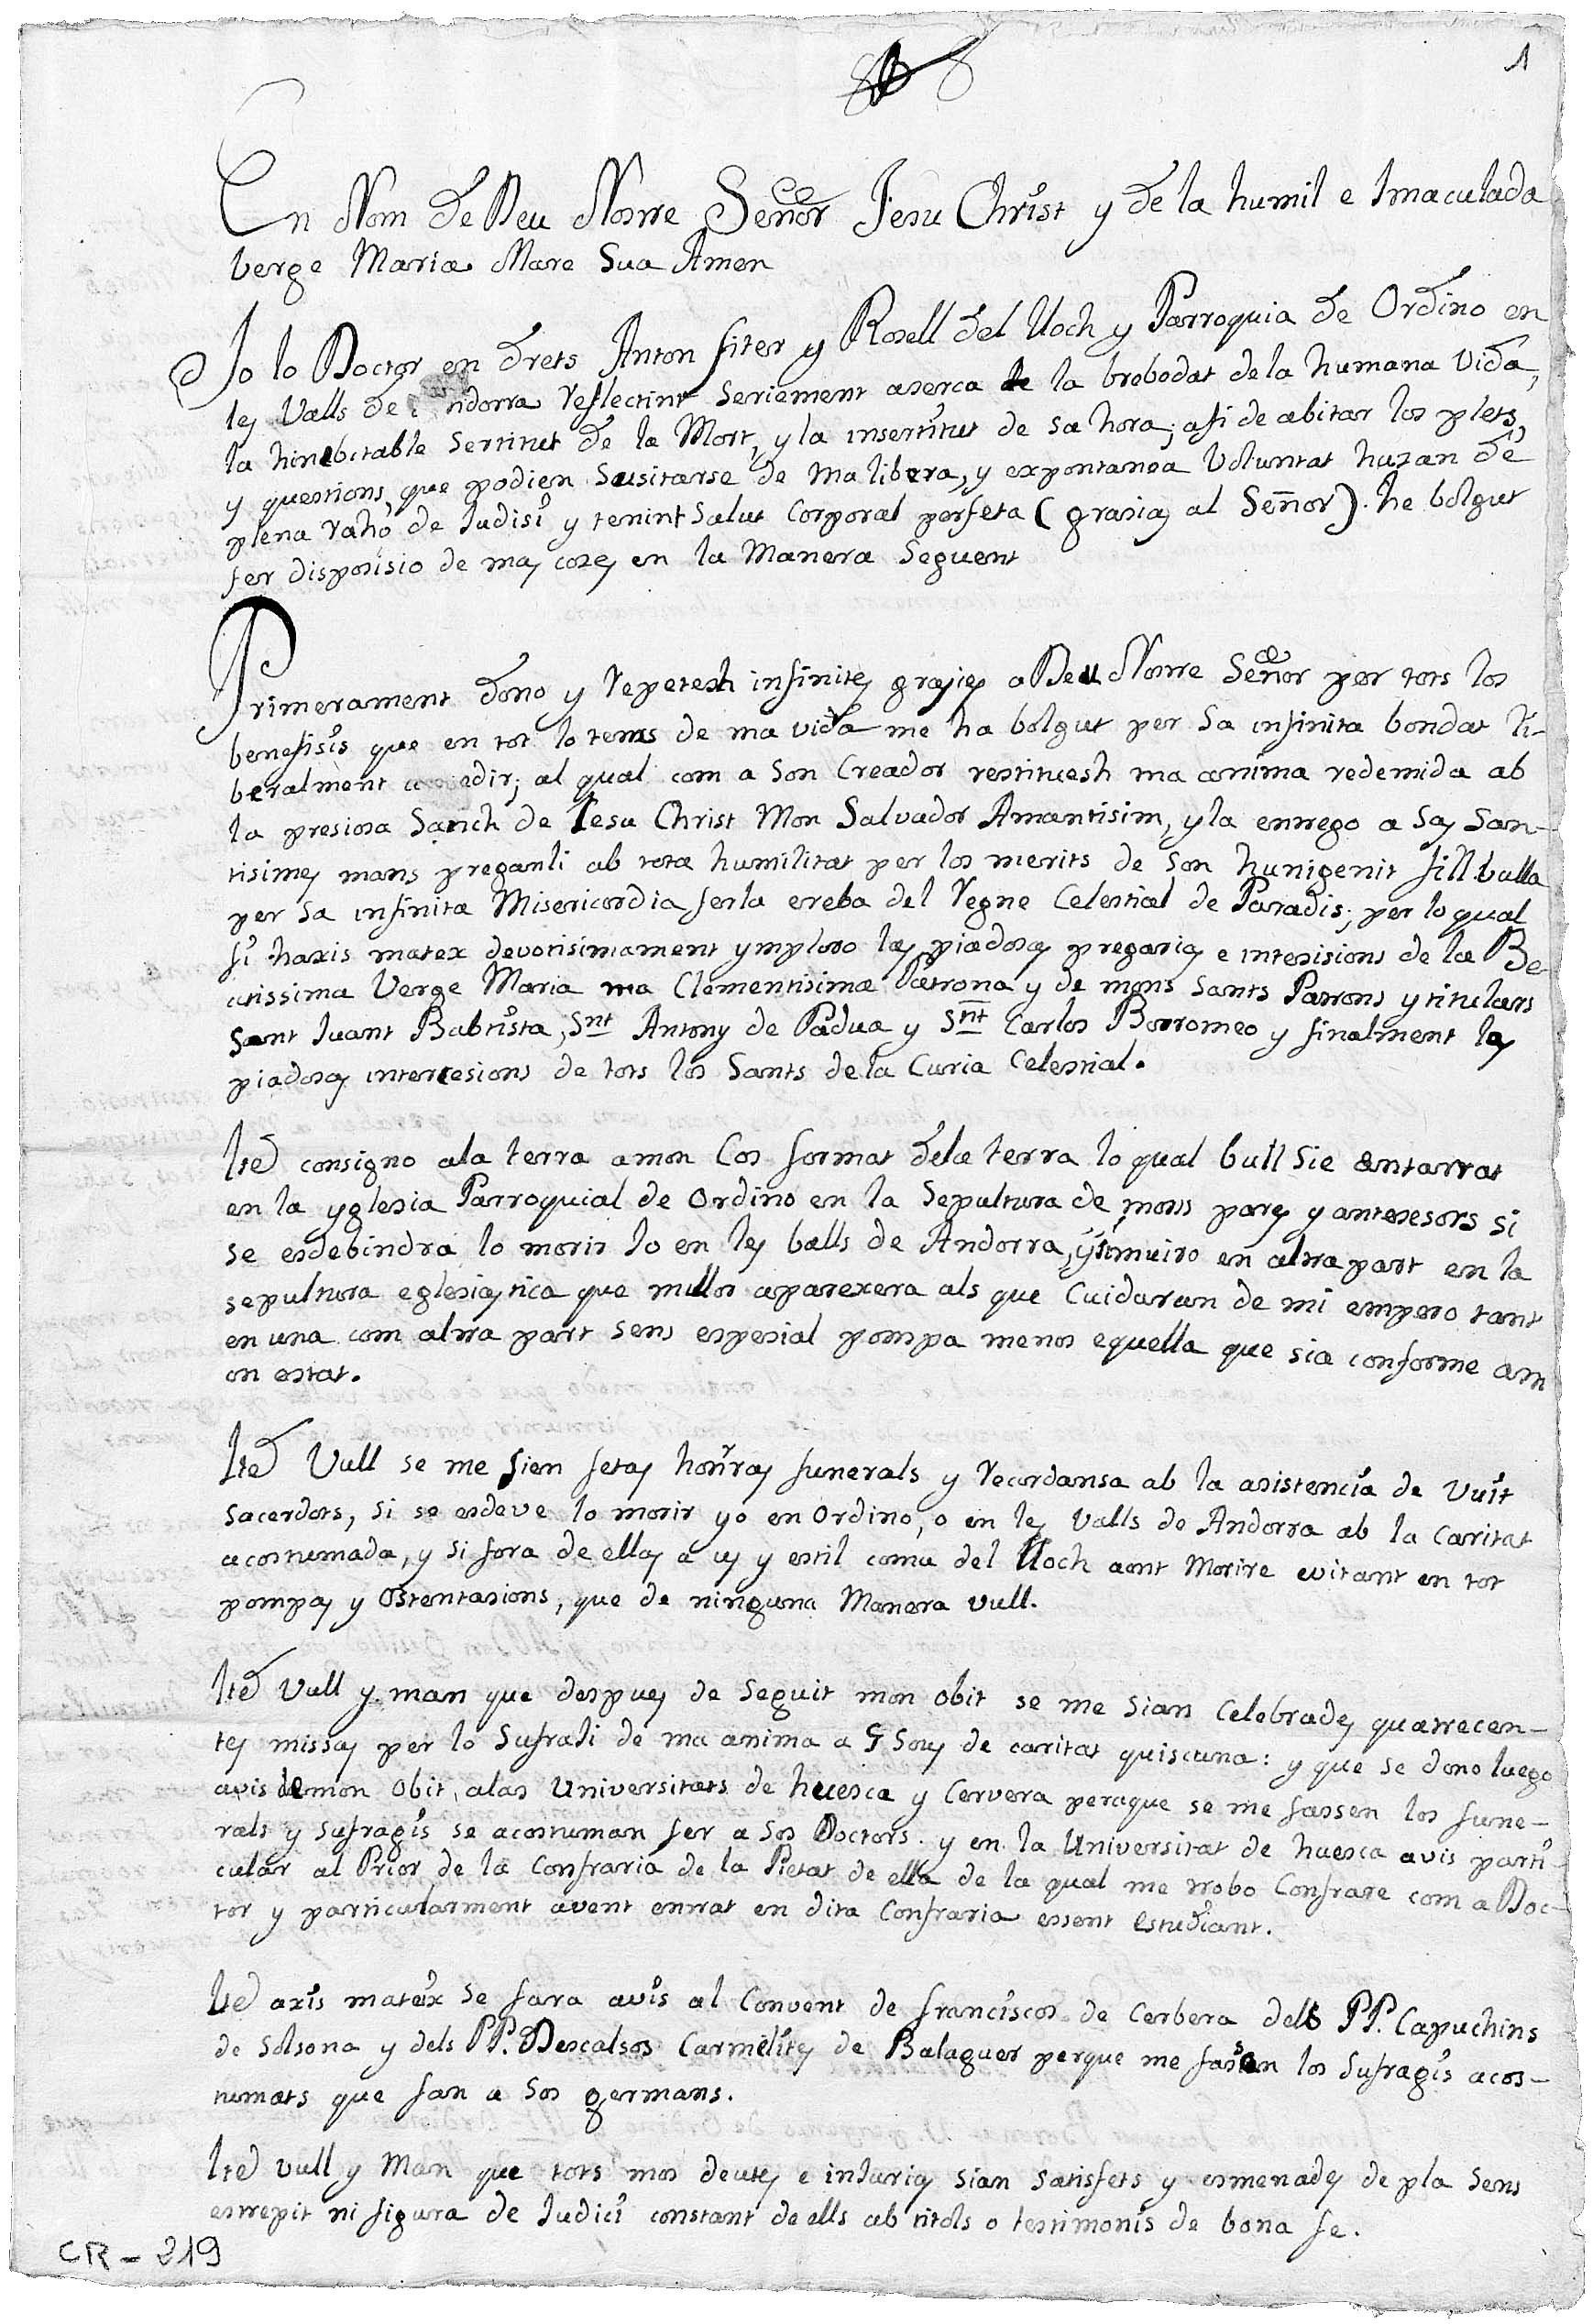 1
En Nom de Deu Nostre Señor Jesu Christ y de la humil e Imaculada
berge Maria Mare Sua Amen
Jo lo Doctor en drets Anton fiter y Rosell del lloch y Parroquia de Ordino en
les Valls de Andorra reflectint seriement aserca de la brebedat de la humana vida,
la hinebitable sertitut de la Mort, y la insertitut de sa hora; afi de abitar los plets,
y questions, que podien susitarse de ma libera, y expontanea voluntat husan de
plena rahó de Judisi y tenint salut Corporal perfeta (grasias al Señor). he bolgut
fer disposisio de mas coses en la Manera Seguent
Primerament dono y repetesh infinites grasies a Deu Nostre Señor per tots los
benefisis que en tot lo tems de ma vida me ha bolgut per Sa infinita bondat li-
beralment consedir; al qual com a Son Creador restituesh ma anima redemida ab
la presiosa Sanch de Jesu Christ Mon Salvador Amantisim, y la entrego a Sas San-
tisimes mans preganli ab tota humilitat per los merits de Son hunigenit fill bulla
per sa infinita Misericordia ferla ereba del Regne Celestial de Paradis; per lo qual
fi haxis matex devotisimament ymploro las piadosas pregarias e intersisions de la Be-
atissima Verge Maria ma Clementisima Patrona y de mons Sants Patrons y titulars
Sant Juant Babtista, Snt Antony de Padua y Snt Carlos Borromeo y finalment las
piadosas intercesions de tots los Sants de la Curia Celestial.
Ite consigno a la terra a mon Cos format de la terra lo qual bull Sie antarrat
en la yglesia Parroquial de Ordino en la Sepultura de mons pares y antesesors si
se esdebindra lo morir Jo en les balls de Andorra, y si muiro en altra part en la
sepultura eglesiastica que millor aparexera als que Cuidaran de mi empero tant
en una com altra part sens espesial pompa menos equella que sia conforme a m
on estat.
Ite Vull se me sien fetas honrras funerals y recordansa ab la asistencia de Vuit
Sacerdots, si se esdeve lo morir yo en Ordino, o en les Valls de Andorra ab la Caritat
acostumada, y si fora de ellas a us y estil comu del lloch aont Morire evitant en tot
pompas y Ostentasions, que de ninguna Manera vull.
Ite Vull y man que despues de seguit mon obit se me sian Celebrades quatrecen-
tes missas per lo Sufrasi de ma anima a 5 Sous de caritat quiscuna: y que se dono luego
avis de mon Obit, a las Universitats de huesca y Cervera peraque se me fassen los fune-
rals y sufragis se acostuman fer a sos Doctors. y en la Universitat de huesca avis parti-
cular al Prior de la Confraria de la Pietat de ella de la qual me trobo Confrare com a Doc-
tor y particularment avent entrat en dita Confraria essent estudiant.
Ite axis mateix se fara avis al Convent de franciscos de Cerbera dels PP. Capuchins
de Solsona y dels PP. Descalsos Carmelites de Balaguer perque me fassen los Sufragis acos-
tumats que fan a Sos germans.
Ite vull y Man que tots mos deutes e injurias sian satisfets y esmenades de pla sens
estrepit ni figura de Judici constant de ells ab titols o testimonis de bona fe.
CR - 219